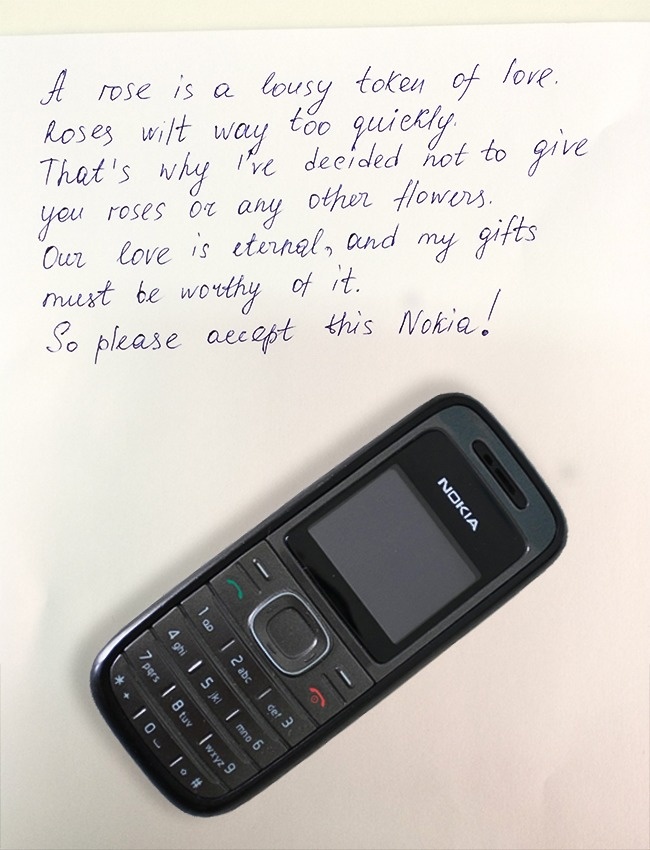 A rose is a lousy token of love.
Roses wilt way too quickly.
That's why I've decided not to give
you roses or any other flowers.
Our love is eternal, and my gifts
must be worthy of it.
So please accept this Nokia!
NOKIA
1
2 abc
def 3
4 ghi
5 jkl
mno 6
7 pqrs
8 tuv
wxyz 9
* +
0
#